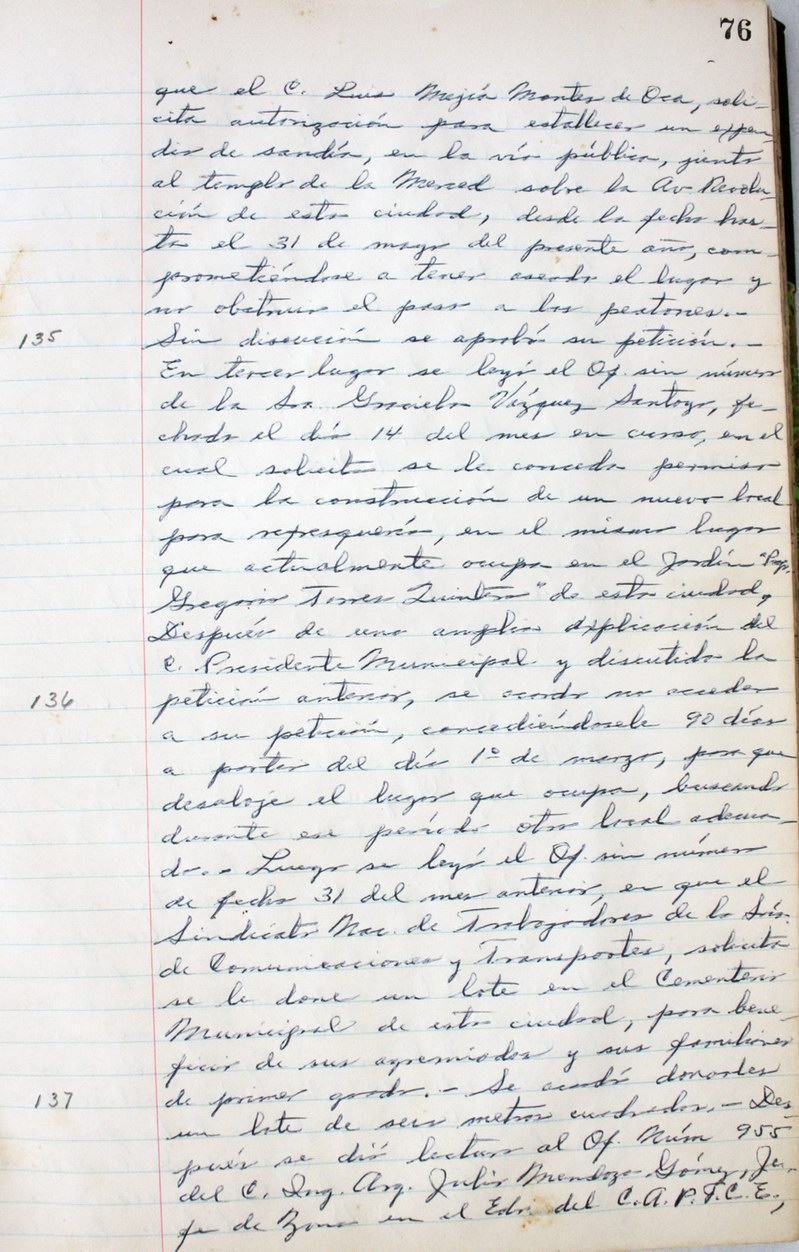 76
que el C. Luis Mejía Montes de Oca, soli-
cita autorización para establecer un expen-
dio de sandía, en la vía pública, junto
al templo de la Merced sobre la Av. Revolu-
ción de esta ciudad, desde la fecha has-
ta el 31 de mayo del presente año, com-
prometiéndose a tener aseado el lugar y
no obstruir el paso a los peatones.-
135 Sin discución se aprobó su petición.-
En tercer lugar se leyó el Of. sin número
de la Sra. Graciela Vázquez Santoyo, fe-
chado el día 14 del mes en curso, en el
cual solicita se le conceda permiso
para la construcción de un nuevo local
para refresquería, en el mismo lugar
que actualmente ocupa en el Jardín "Prof.
Gregorio Torres Quintero" de esta ciudad,
Después de una amplia explicación del
C. Presidente Municipal y discutida la
136 petición anterior, se acordó no acceder
a su petición, concediéndosele 90 días
a partir del día 1º de marzo, para que
desaloje el lugar que ocupa, buscando
durante ese período otro local adecua-
do.- Luego se leyó el Of. sin número
de fecha 31 del mes anterior, en que el
Sindicato Nac. de Trabajadores de la Sría.
de Comunicaciones y Transportes, solicita
se le done un lote en el Cementerio
Municipal de esta ciudad, para bene-
ficio de sus agremiados y sus familiares
137 de primer grado.- Se acordó donarles
un lote de seis metros cuadrados.- Des-
pués se dió lectura al Of. Núm 955
del C. Ing. Arq. Julio Mendoza Gómez, Je-
fe de Zona en el Edo. del C.A.P.F.C.E.,